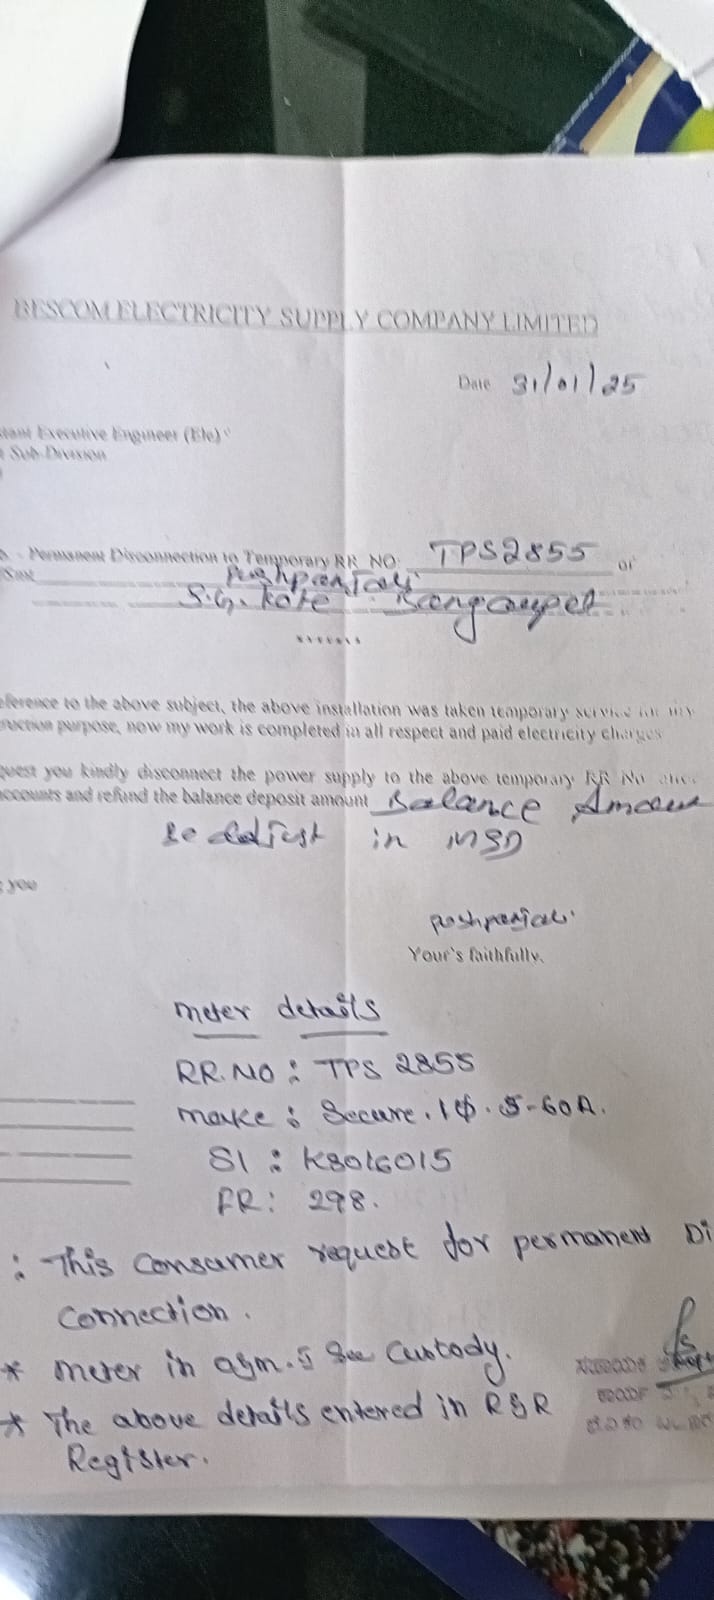 BESCOM ELECTRICITY SUPPLY COMPANY LIMITED
Date 31/01/25
tant Executive Engineer (Ele)
Sub-Division
Permanent Disconnection to Temporary RR NO: TPS2855 of
Smt
S.G. Kote Bangarpet
.......
eference to the above subject, the above installation was taken temporary service for my
ruction purpose, now my work is completed in all respect and paid electricity charges
quest you kindly disconnect the power supply to the above temporary RR No
accounts and refund the balance deposit amount Balance Amount
in MSD
you
Your's faithfully,
meter details
RR.NO : TPS 2855
make : Secure. 1ϕ. 5-60A.
Sl : K8016015
FR: 298.
: This consumer request for permanent Di
Connection.
* meter in custody.
* The above details entered in R&R
Register.